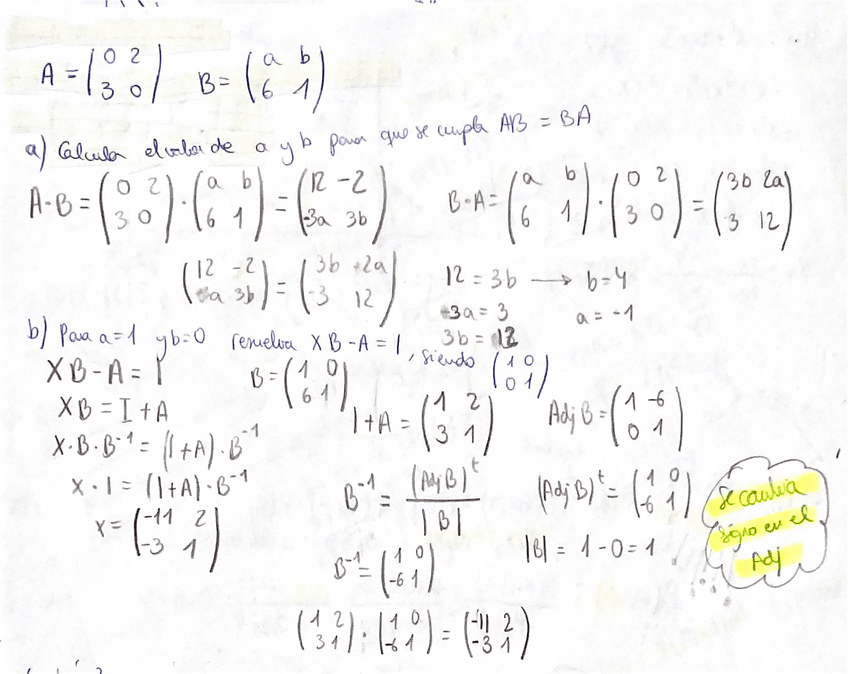 A = (0 2 / 3 0) B = (a b / 6 1)
a) Calcula el valor de a y b para que se cumpla AB = BA
A·B = (0 2 / 3 0) · (a b / 6 1) = (12 -2 / -3a 3b) B·A = (a b / 6 1) · (0 2 / 3 0) = (3b 2a / 3 12)
(12 -2 / -a 3b) = (3b -2a / -3 12) 12 = 3b → b = 4
-3a = 3 a = -1
3b = 12
b) Para a=1 y b=0 resuelva XB - A = I, siendo (1 0 / 0 1)
XB - A = I B = (1 0 / 6 1)
XB = I + A I + A = (1 2 / 3 1) Adj B = (1 -6 / 0 1)
X·B·B⁻¹ = (I+A)·B⁻¹
X·I = (I+A)·B⁻¹ B⁻¹ = (Adj B)ᵗ / |B| (Adj B)ᵗ = (1 0 / -6 1)
X = (-11 2 / -3 1) |B| = 1 - 0 = 1
B⁻¹ = (1 0 / -6 1)
(1 2 / 3 1) · (1 0 / -6 1) = (-11 2 / -3 1)
Se cambia
signo en el
Adj